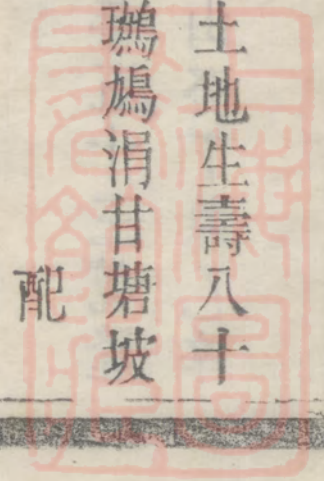 土地生壽八十
鵶鳩涓甘塘坡
配